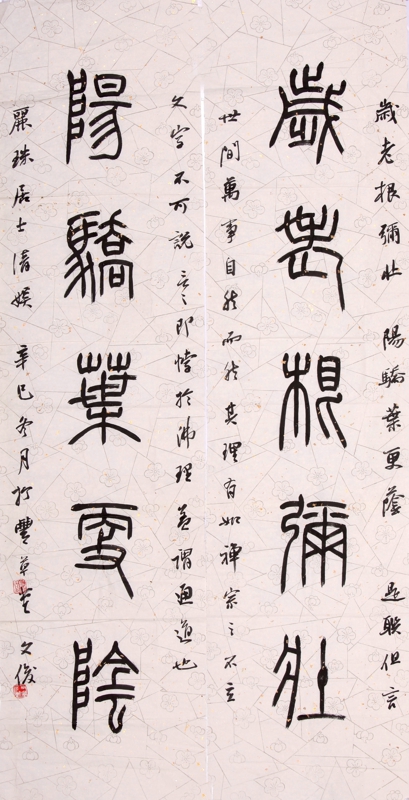 歲老根彌壯
陽驕葉更陰
歲老根彌壯 陽驕葉更蔭 是聯但言
世間萬事自然而然其理有如禪宗之不立
文字不可說言之即悖於佛理蓋謂通道也
麗珠居士清娛 辛巳冬月於豐草堂 文俊